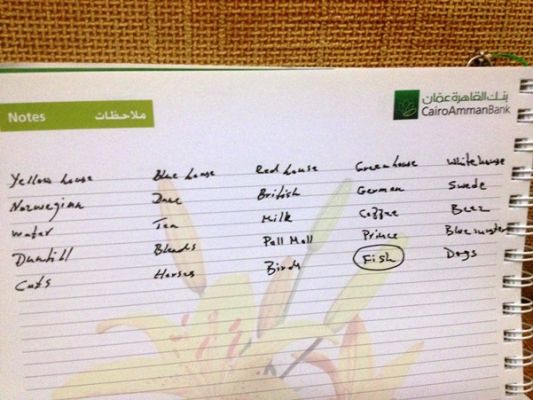 Notes ملاحظات
بنك القاهرة عمان
CairoAmmanBank
Yellow house Blue house Red house Green house White house
Norwegian Dane British German Swede
Water Tea Milk Coffee Beer
Dunhill Blends Pall Mall Prince Bluemaster
Cats Horses Birds Fish Dogs